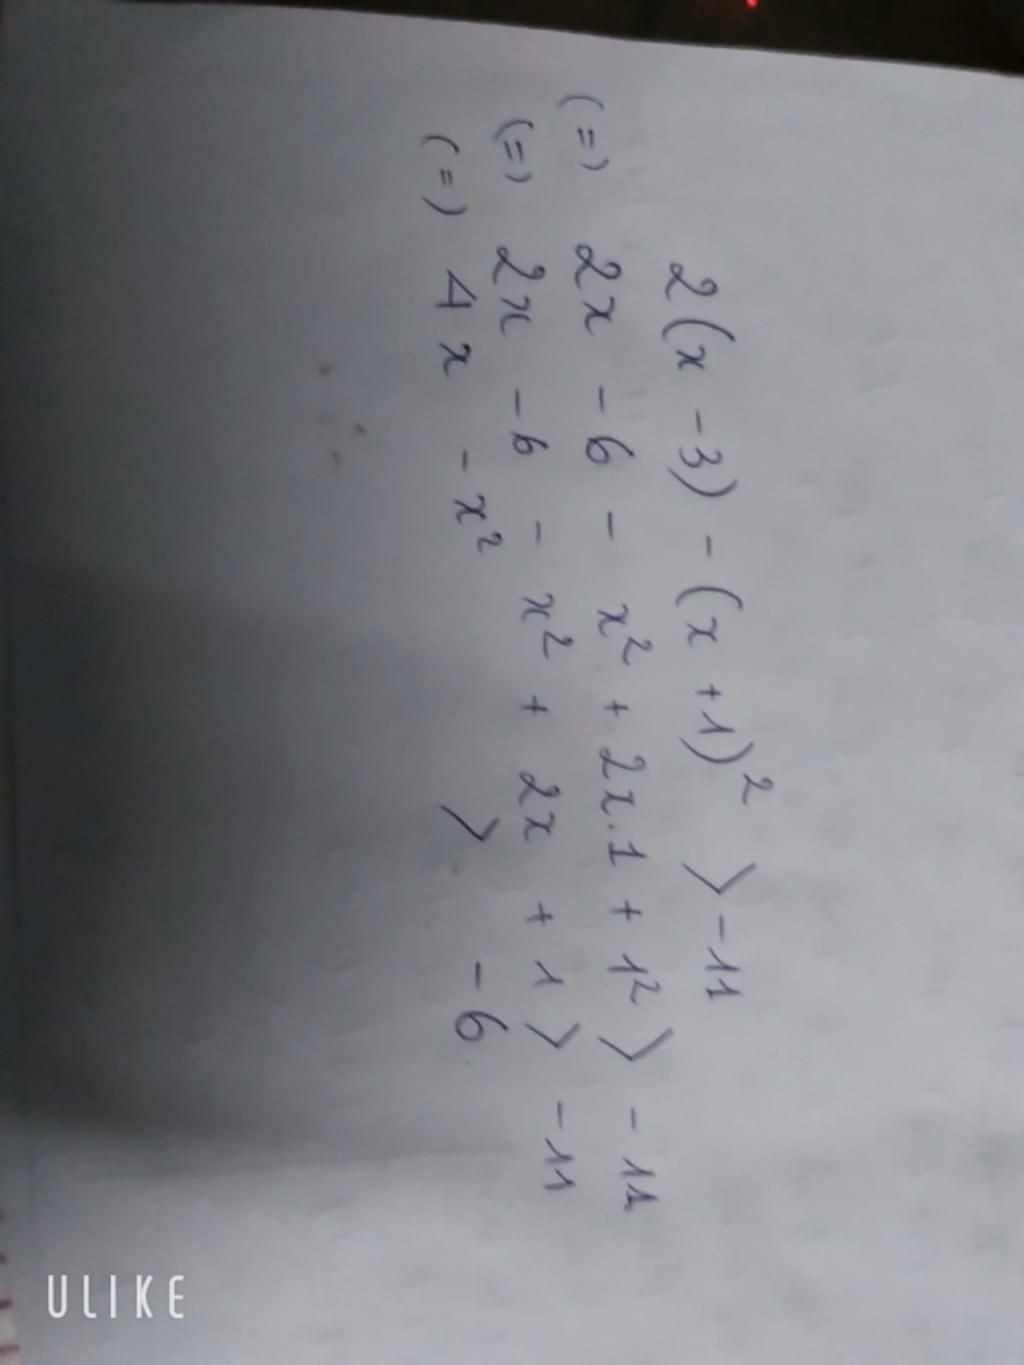 2(x - 3) - (x + 1)² > -11
(=) 2x - 6 - x² + 2x.1 + 1² > - 11
(=) 2x - 6 - x² + 2x + 1 > - 11
(=) 4x - x² > - 6
ULIKE